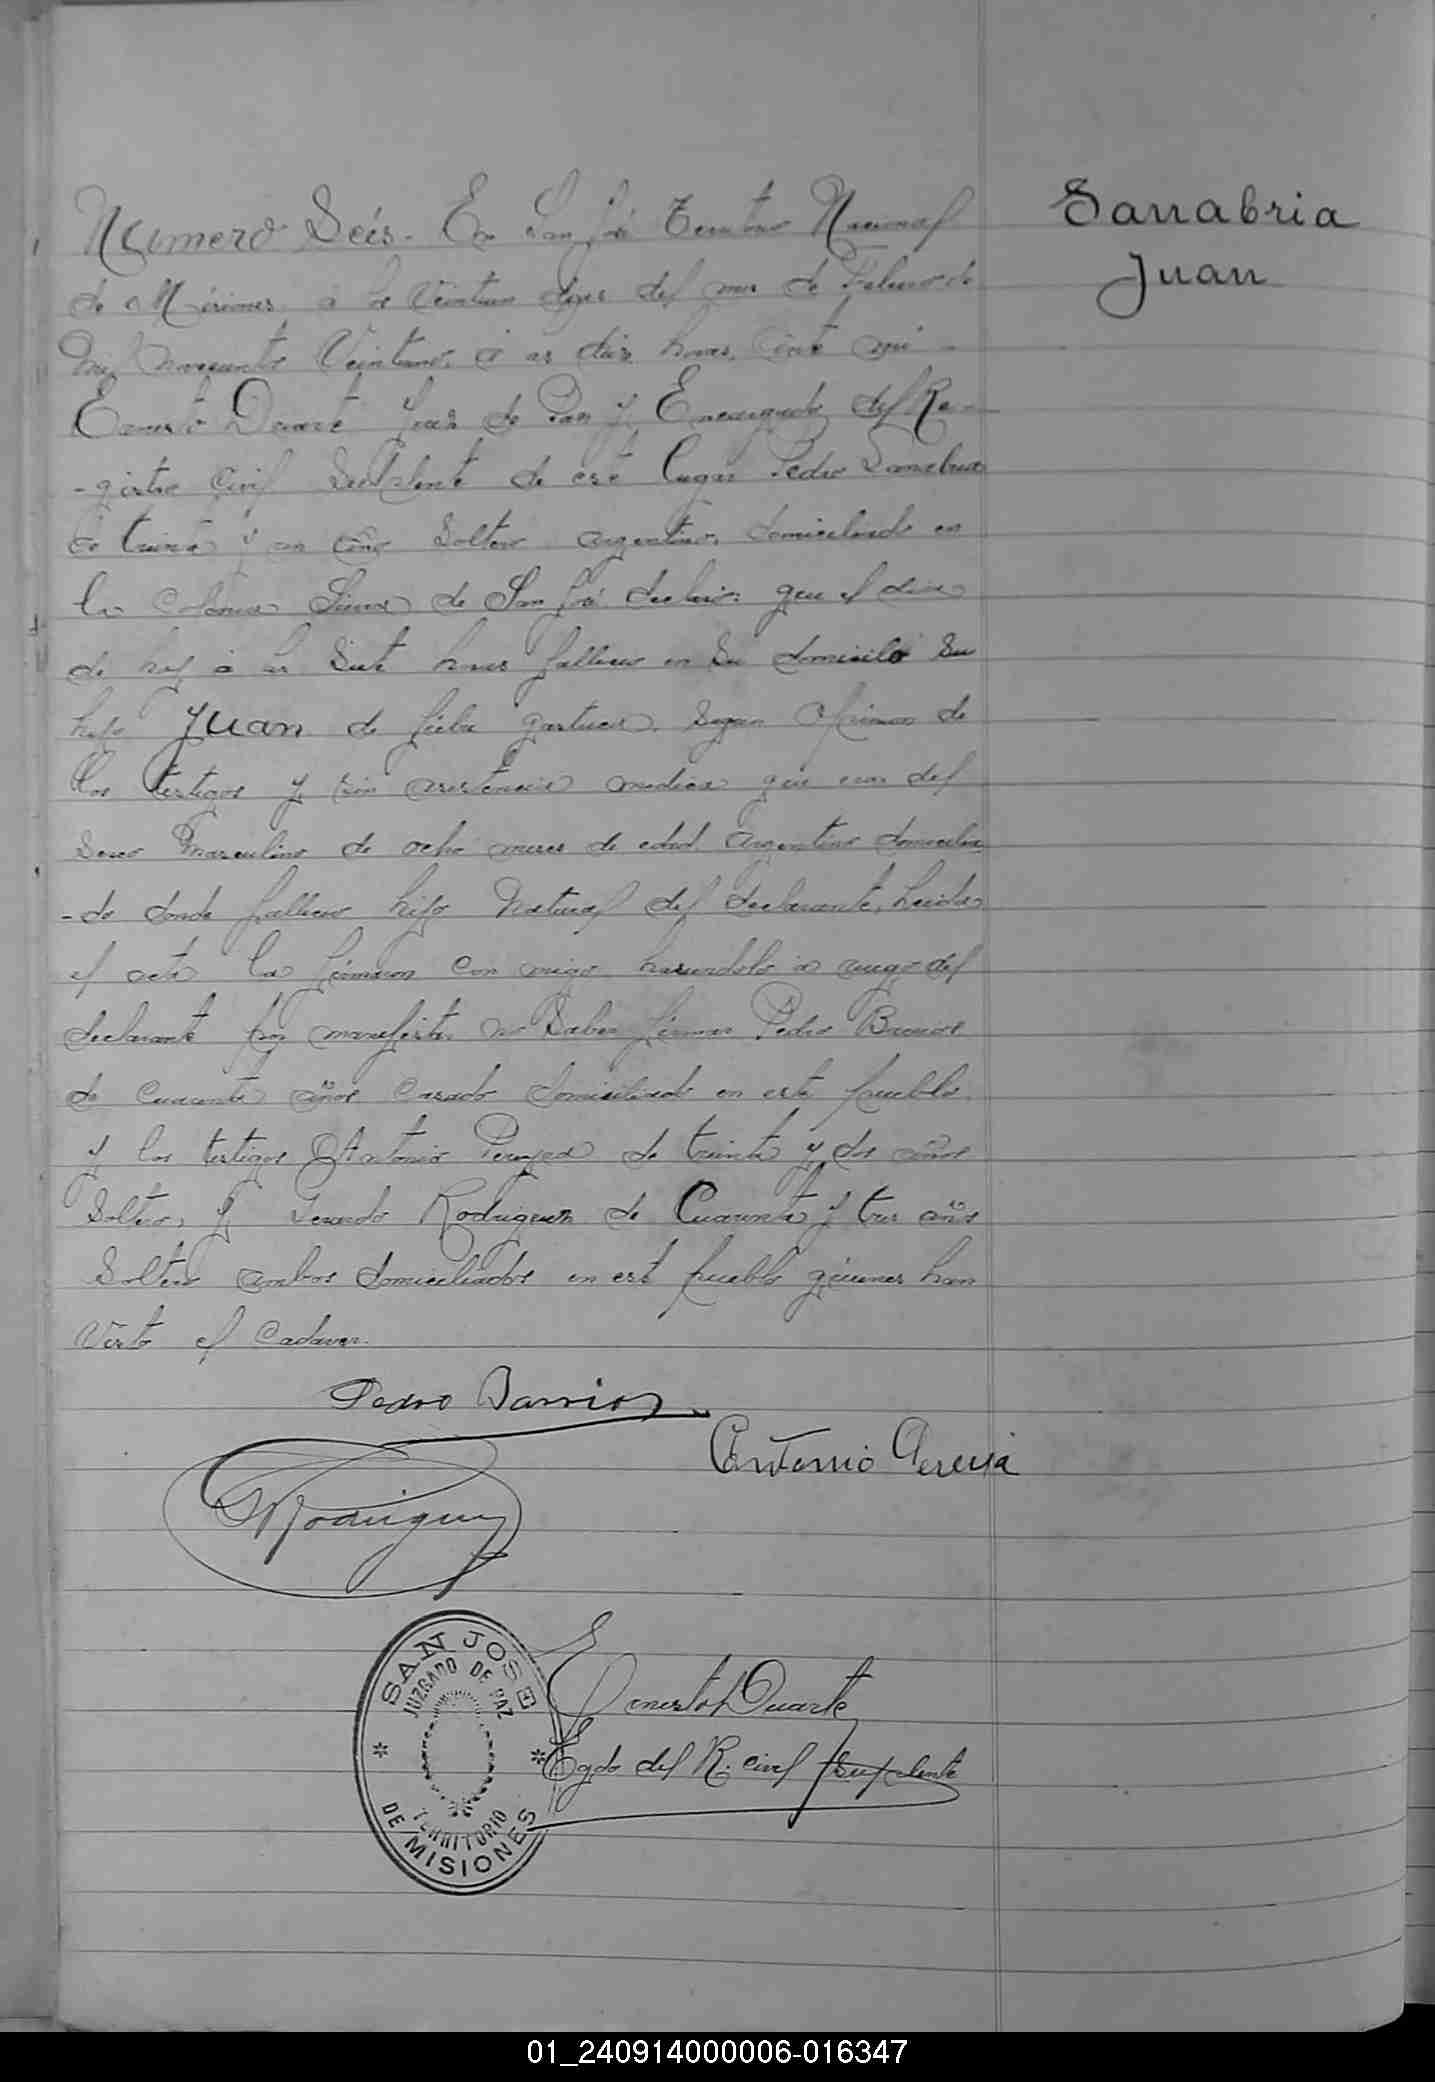 Sanabria
Juan
Numero Seis. En San José Territorio Nacional
de Misiones a los Veintiun dias del mes de Febrero de
mil novecientos Veintiuno, a las diez horas, ante mi
Ernesto Duarte Juez de Paz y Encargado del Re-
-gistro Civil Suplente de este lugar Pedro Sanabria
de treinta y un años Soltero, argentino, domiciliado en
la Colonia Sierra de San José declaró: que el dia
de hoy a las Siete horas fallecio en Su domicilio Su
hijo Juan de fiebre gastrica. Segun opinion de
los testigos y sin asistencia medica que era del
Sexo Masculino de ocho meses de edad, Argentino domicilia
-do donde fallecio hijo Natural del declarante, heida
el acta la firmaron con migo, haciendolo a ruego del
declarante por manifestar no Saber firmar Pedro Barrios
de cuarenta años Casado domiciliado en este pueblo.
y los testigos Antonio Pereyra de treinta y dos años
Soltero, y Rodriguez de Cuarenta y tres años
Soltero ambos domiciliados en este pueblo quienes han
Visto el Cadaver.
Pedro Barrios
Antonio Pereyra
Rodriguez
Ernesto Duarte
Egdo del R. civil Suplente
SAN JOSE
JUZGADO DE PAZ
TERRITORIO
DE MISIONES
01_240914000006-016347